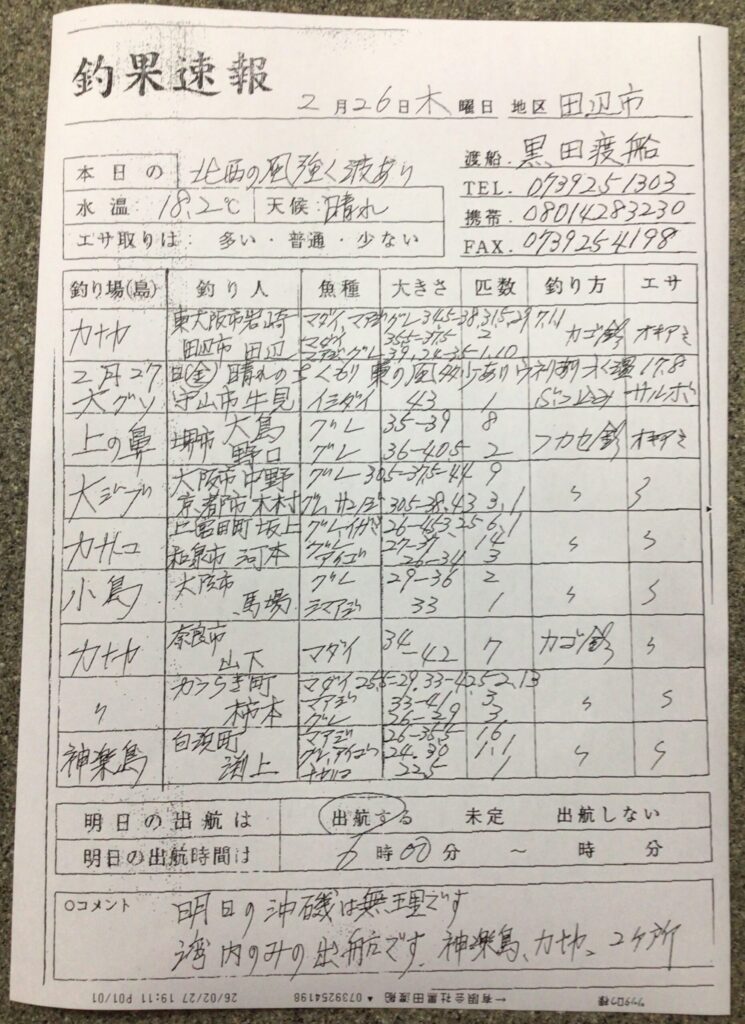 釣果速報
2月26日木曜日 地区 田辺市
渡船. 黒田渡船
本日の 北西の風強く波あり
TEL. 0739251303
水温 18.2℃ 天候 晴れ
携帯. 08014283230
エサ取りは : 多い・普通・少ない
FAX. 0739254198
釣り場(島) 釣り人 魚種 大きさ 匹数 釣り方 エサ
カナヤ 東大阪市岩崎 マダイ、マアジ グレ 34.5-38,31.5,29 7,1,1 カゴ釣 オキアミ
田辺市 田辺 マダイ 35.5-37.5 2
マアジ・グレ 39,24-35 1,10
2月27日(金) 晴れのちくもり 東の風 ウネリあり 水温 17.8
大グソ 守山市 牛見 イシダイ 43 1 サルボ
上の鼻 堺市 大島 グレ 35-39 8 フカセ釣 オキアミ
野口 グレ 36-40.5 2
大阪市 中野 グレ 30.5-37.5-44 9 〃 〃
京都市 木村 グレ, 30.5-38.43 3,1
上富田町 坂上 グレ,イガミ 26-45.3,25 6,1 〃 〃
和泉市 河本 グレ 27-37 14
アイゴ 26-34 3
小島 大阪市 馬場 グレ 29-36 2 〃 〃
シマアジ 33 1
カナヤ 奈良市 山下 マダイ 34-42 7 カゴ釣 〃
〃 かつらぎ町 柿本 マダイ 25.5-29.33-42.5 2,13 〃 〃
マアジ 33-41 3
グレ 26-29 3
神楽島 白浜町 渕上 マアジ 26-35.5 16 〃 〃
グレ,アイゴ 24.30 1,1
22.5 1
明日の出航は 出航する 未定 出航しない
明日の出航時間は 6時00分 ~ 時 分
○コメント 明日の沖磯は無理です
湾内のみの出船です. 神楽島、カナヤ、2ケ所
26/02/27 19:11 P01/01 ▲ 0739254198 ←有限会社黒田渡船